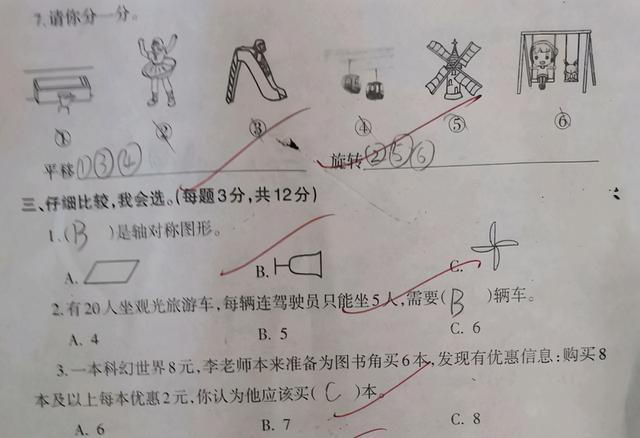 7.请你分一分。
① ② ③ ④ ⑤ ⑥
平移①③④ 旋转②⑤⑥
三、仔细比较,我会选。(每题3分,共12分)
1.( B )是轴对称图形。
A. B. C.
2.有20人坐观光旅游车,每辆连驾驶员只能坐5人,需要( B )辆车。
A. 4 B. 5 C. 6
3.一本科幻世界8元,李老师本来准备为图书角买6本,发现有优惠信息:购买8
本及以上每本优惠2元,你认为他应该买( C )本。
A. 6 B. 7 C. 8